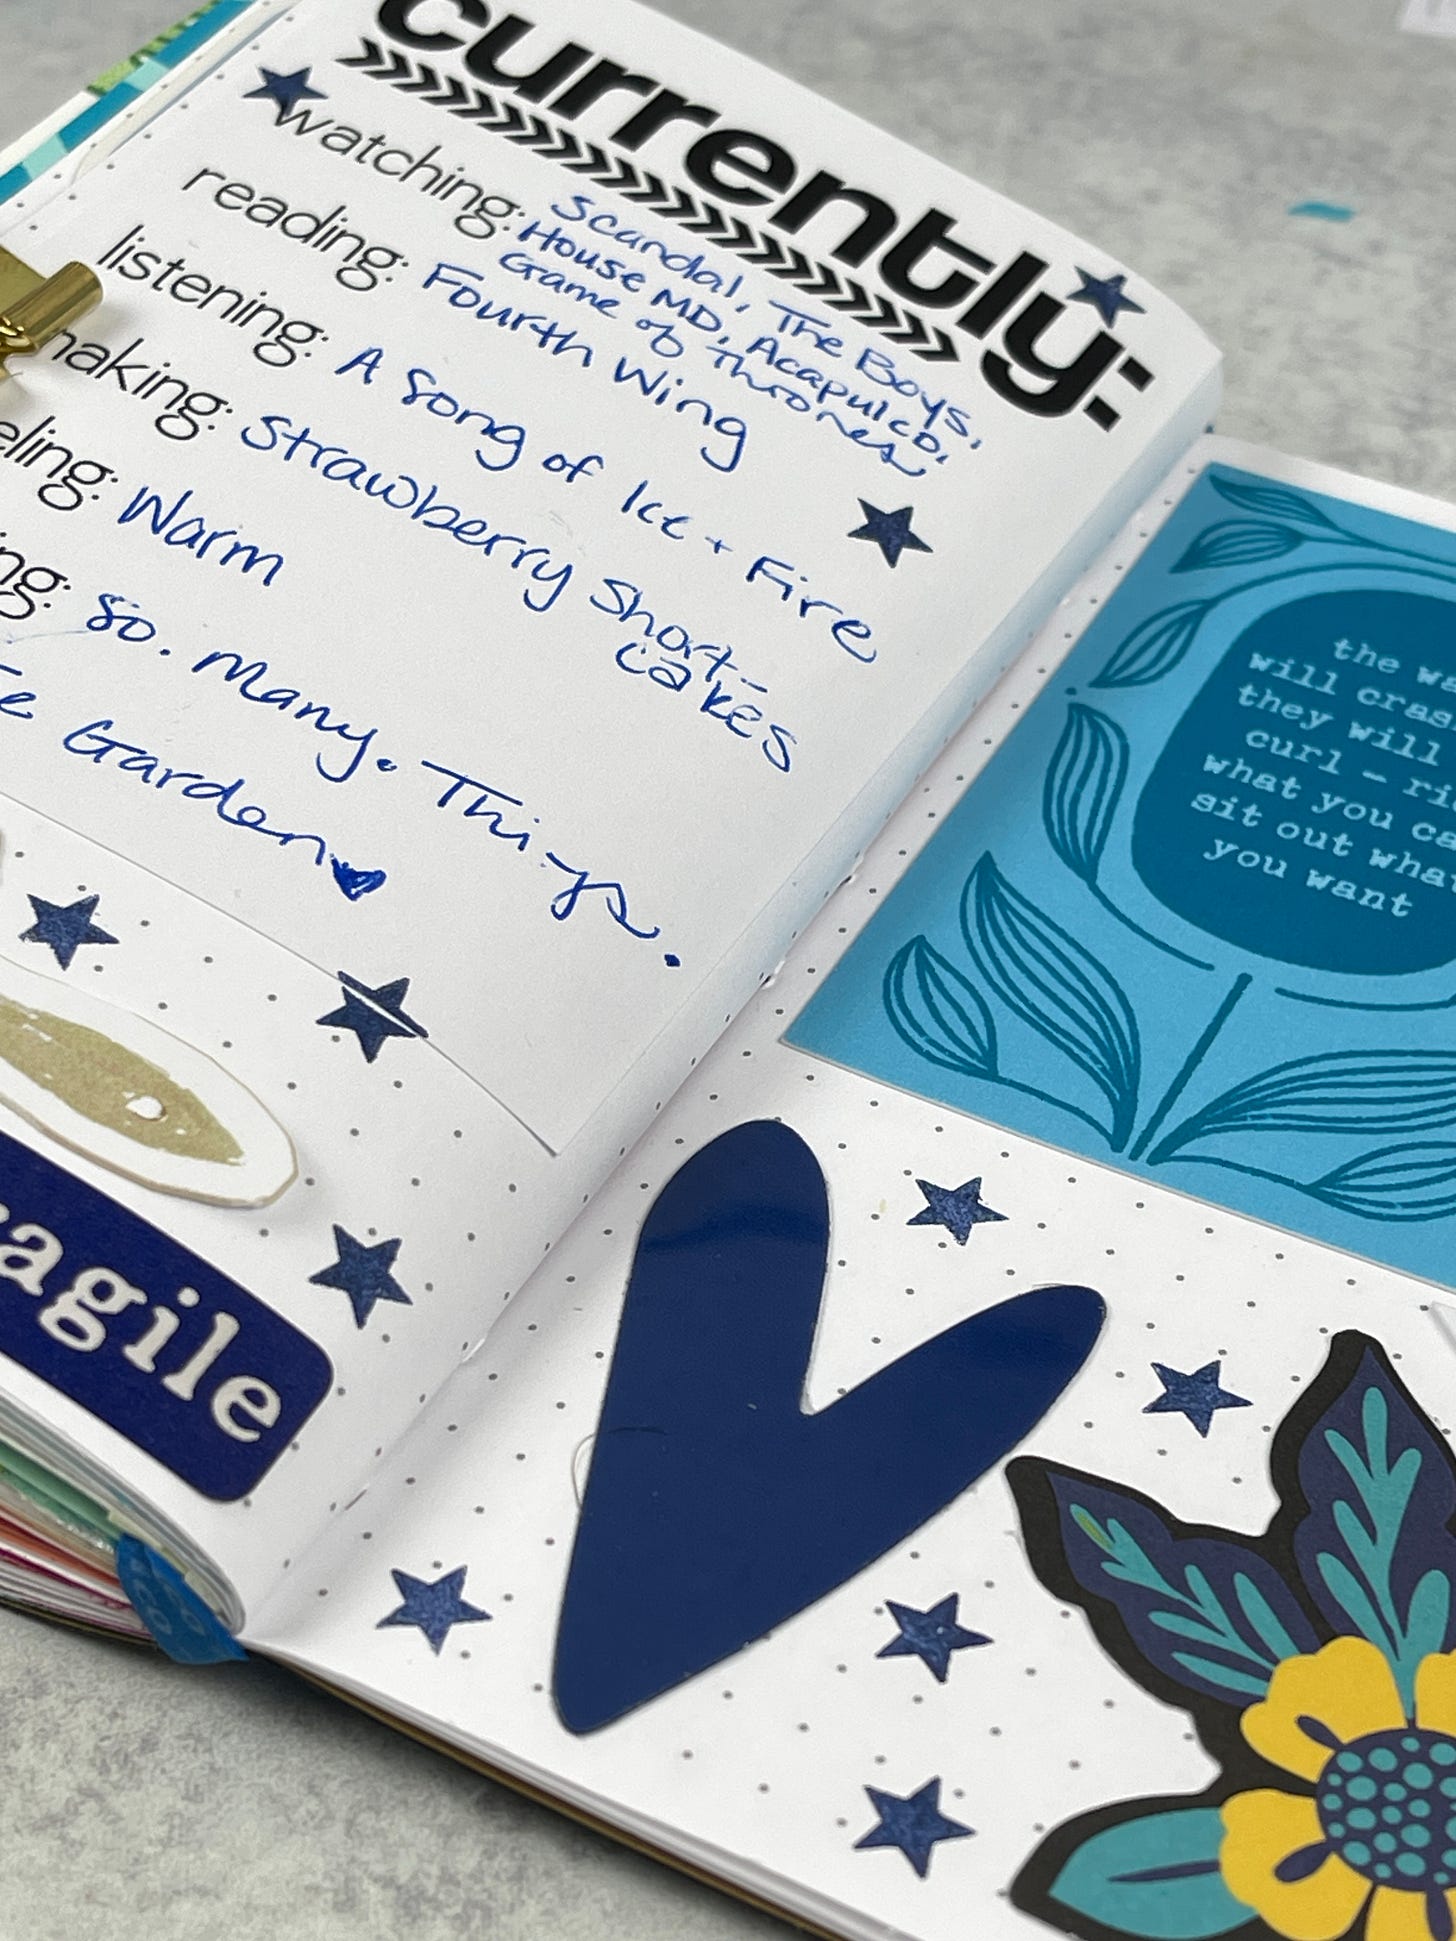 currently:
watching: Scandal, The Boys,
House MD, Acapulco,
Game of Thrones
reading: Fourth Wing
listening: A Song of Ice + Fire
making: Strawberry Short-
cakes
eling: Warm
ing: So. Many. Things.
Garden
agile
the wa
will cras
they will
curl - ri
what you ca
sit out what
you want